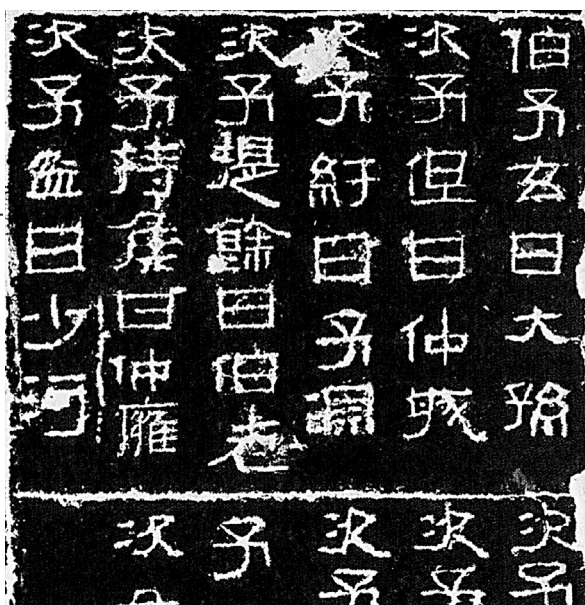 伯子玄曰大孫
次子但曰仲城
次子紆曰子淵
次子提餘曰伯老
次子持侯曰仲雍
次子盆曰少河
次子
次子
次子
子
次